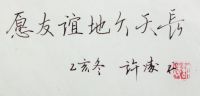 愿友谊地久天長
乙亥冬 许